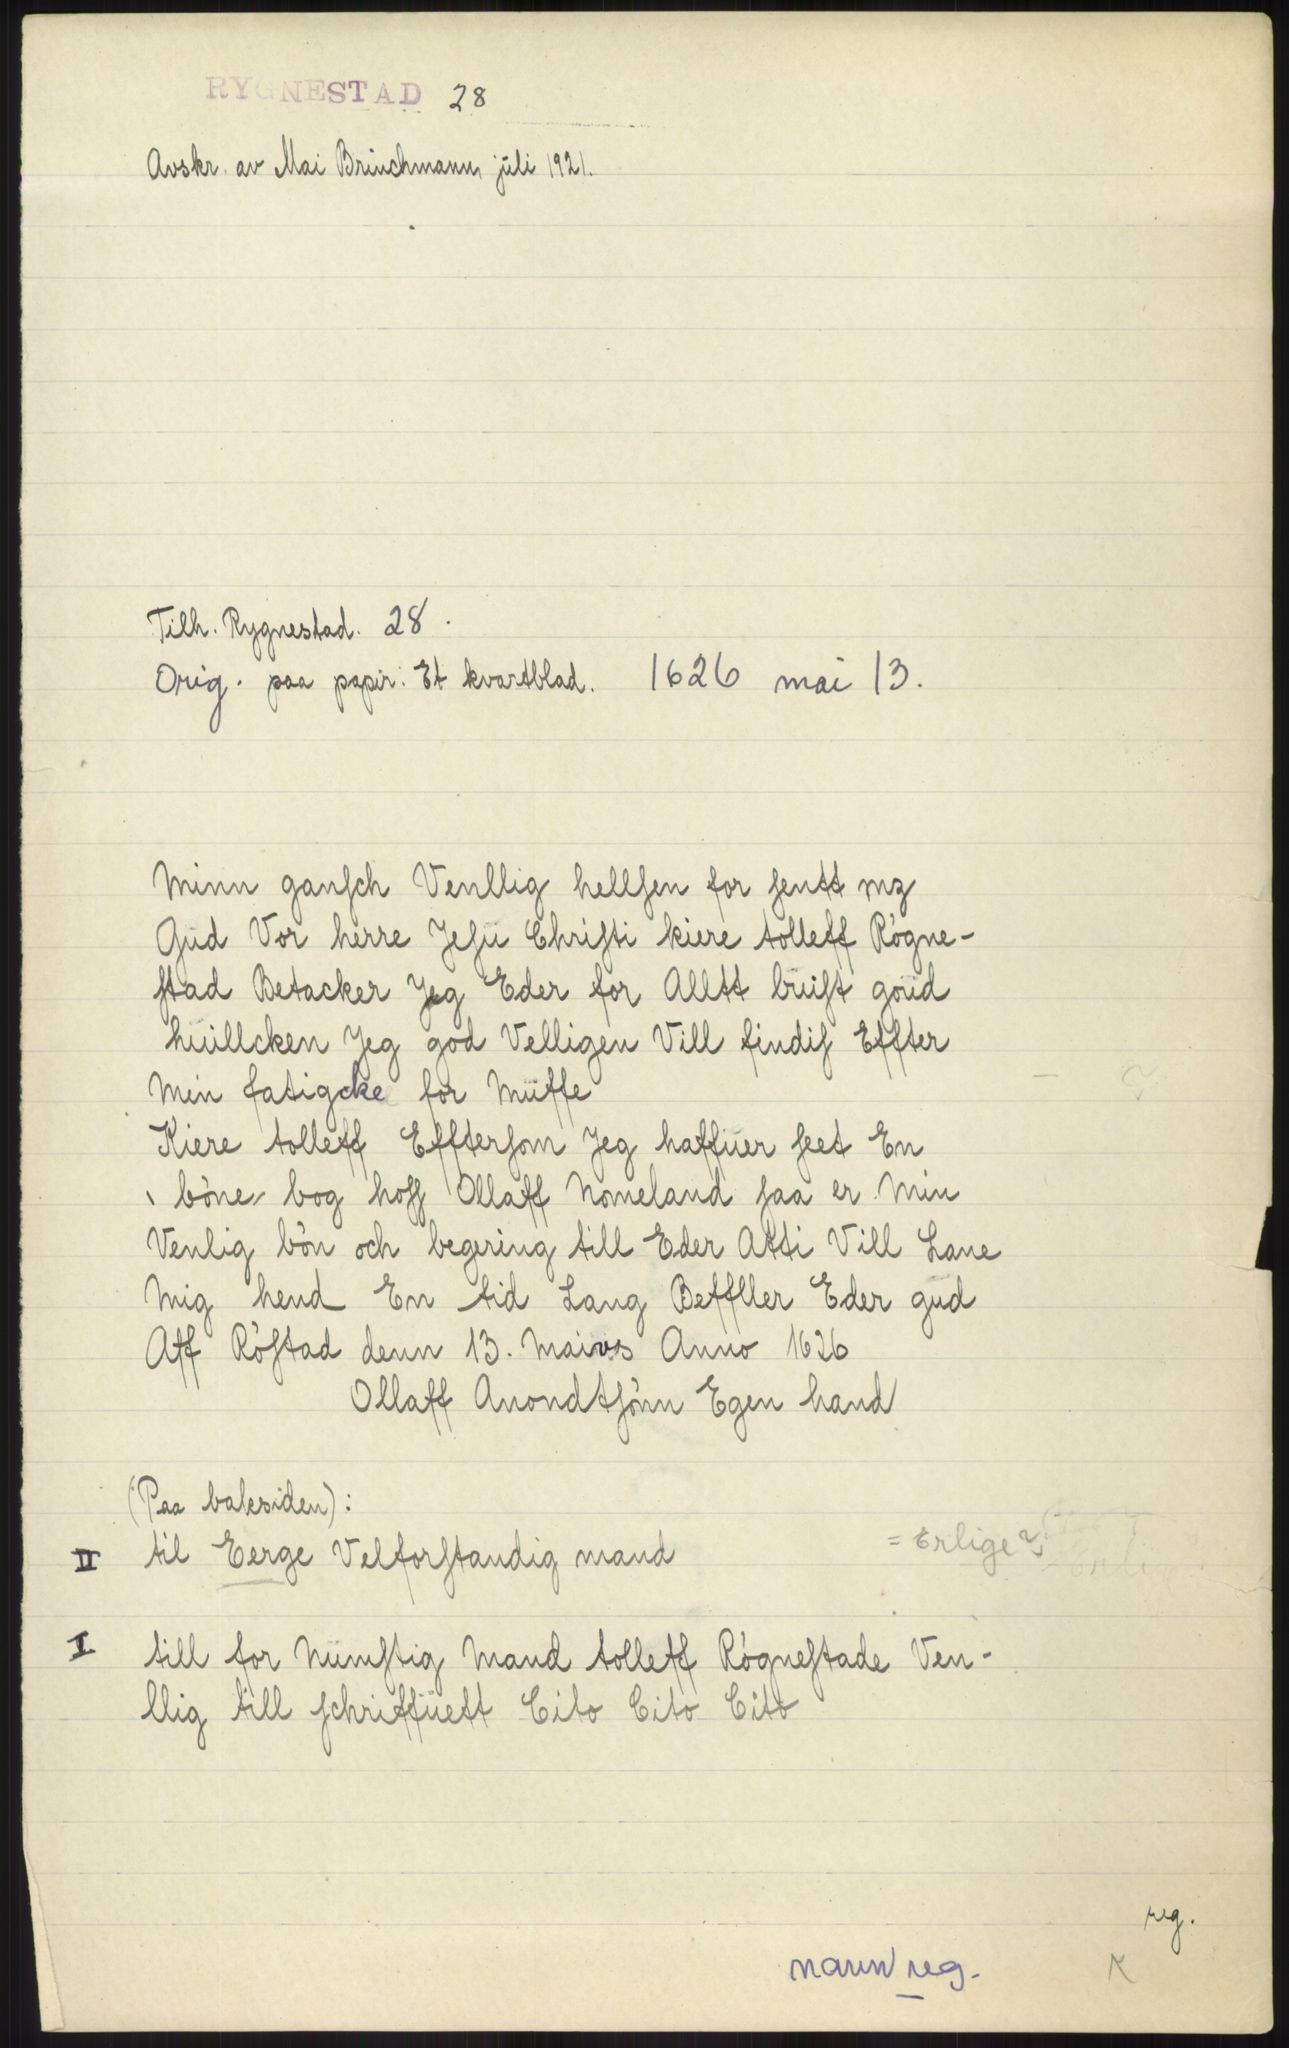 RYGNESTAD 28
Avskr. av Mai Brinchmann, juli 1921.
Tilh. Rygnestad. 28.
Orig. paa papir. Et kvartblad. 1626 mai 13.
Minn ganſch Venllig hellſen for ſentt mz
Gud Vor herre Jeſu Chriſti kiere tolleff Rógne-
ſtad Betacker Jeg Eder for Alltt buiſt goud
huillcken Jeg god Velligen Vill findiſ Effter
Min fatigcke for Muffe
Kiere tolleff Effterſom Jeg haffuer ſeet En
bóne bog hoſſ Ollaff Nomeland ſaa er Min
Venlig bón och begering till Eder Atti Vill Lane
Mig hend En tid Lang Beffller Eder gud
Aff Róſtad denn 13. Maivs Anno 1626
Ollaff Anondtſónn Egen hand
(Paa baksiden):
II til Eerge Velforſtandig mand = Erlige?
I till for Numſtig Mand tolleff Rógneſtade Ven-
llig till ſchriffuett Cito Cito Cito
reg.
navn reg.